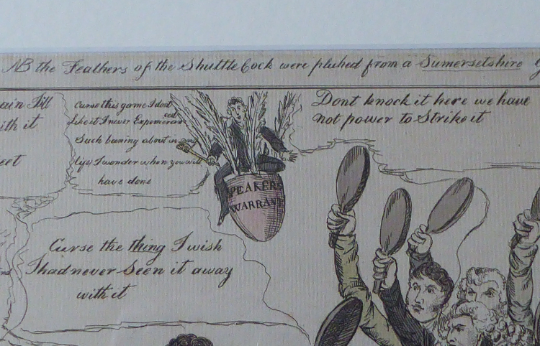 NB the Feathers of the Shuttle Cock were plushed from a Sumersetshire
ith it
eet
Curse this game I dont
like it I never Experienced
Such beating about in
life I wonder when you will
have done
SPEAKERS
WARRANT
Dont knock it here we have
not power to Strike it
Curse the thing I wish
I had never Seen it away
with it